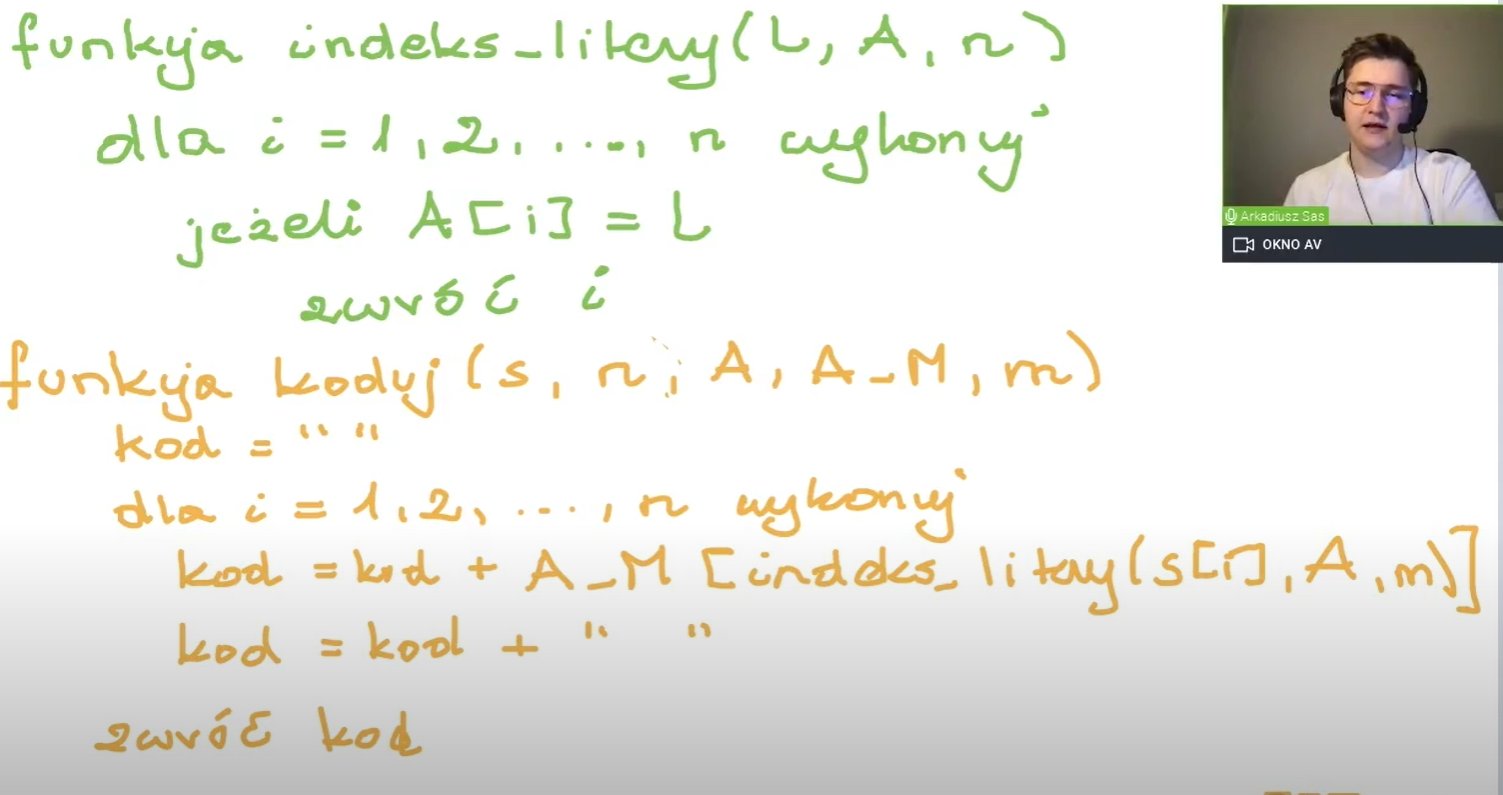 funkcja indeks_litery(L, A, n)
dla i = 1, 2, ..., n wykonuj
jeżeli A[i] = L
zwróć i
funkcja koduj(s, n, A, A_M, m)
kod = " "
dla i = 1, 2, ..., n wykonuj
kod = kod + A_M [indeks_litery(s[i], A, m)]
kod = kod + "  "
zwróć kod
Arkadiusz Sas
OKNO AV